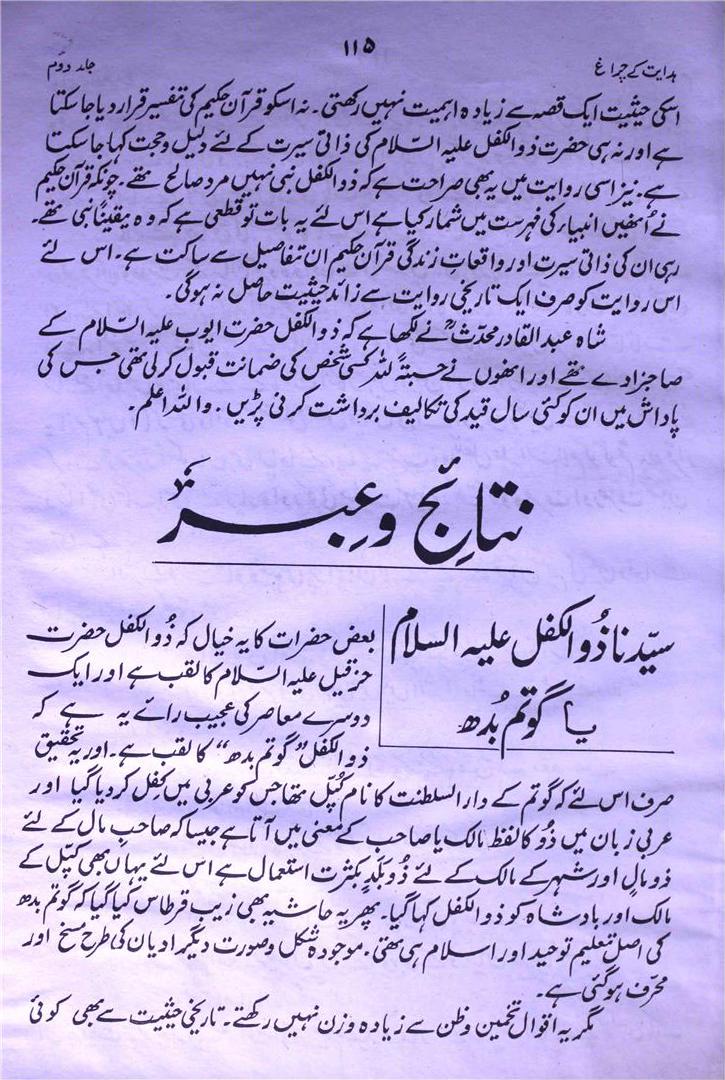 ہدایت کے چراغ
۱۱۵
جلد دوم
اسکی حیثیت ایک قصہ سے زیادہ اہمیت نہیں رکھتی۔ نہ اسکو قرآن حکیم کی تفسیر قرار دیا جاسکتا
ہے اور نہ ہی حضرت ذوالکفل علیہ السّلام کی ذاتی سیرت کے لئے دلیل و حجت کہا جاسکتا
ہے۔ نیز اسی روایت میں یہ بھی صراحت ہے کہ ذوالکفل نبی نہیں مرد صالح تھے۔ چونکہ قرآن حکیم
نے اُنھیں انبیاء کی فہرست میں شمار کیا ہے اس لئے یہ بات تو قطعی ہے کہ وہ یقیناً نبی تھے۔
رہی ان کی ذاتی سیرت اور واقعاتِ زندگی قرآن حکیم ان تفاصیل سے ساکت ہے۔ اس لئے
اس روایت کو صرف ایک تاریخی روایت سے زائد حیثیت حاصل نہ ہوگی۔
شاہ عبدالقادر محدثؒ نے لکھا ہے کہ ذوالکفل حضرت ایوب علیہ السّلام کے
صاجزادے تھے اور انھوں نے حسبتہً للّٰہ کسی شخص کی ضمانت قبول کرلی تھی جس کی
پاداش میں ان کو کئی سال قید کی تکالیف برداشت کرنی پڑیں۔ واللہ اعلم۔
نتائج و عبر
سیّدنا ذُوالکفل علیہ السلام
یا گوتم بُدھ
بعض حضرات کا یہ خیال کہ ذُوالکفل حضرت
حزقیل علیہ السّلام کا لقب ہے اور ایک
دوسرے معاصر کی عجیب رائے یہ ہے کہ
ذوالکفل "گوتم بدھ" کا لقب ہے۔ اور یہ تحقیق
صرف اس لئے کہ گوتم کے دار السلطنت کا نام کپّل تھا جس کو عربی میں کفل کر دیا گیا اور
عربی زبان میں ذُو کا لفظ مالک یا صاحب کے معنی میں آتا ہے جیسا کہ صاحبِ مال کے لئے
ذو مالٍ اور شہر کے مالک کے لئے ذُو بَلَدٍ بکثرت استعمال ہے اس لئے یہاں بھی کپّل کے
مالک اور بادشاہ کو ذوالکفل کہا گیا۔ پھر یہ حاشیہ بھی زیب قرطاس کیا گیا کہ گوتم بدھ
کی اصل تعلیم توحید اور اسلام ہی تھی۔ موجودہ شکل و صورت دیگر ادیان کی طرح مسخ اور
محرّف ہوگئی ہے۔
مگر یہ اقوال تخمین و ظن سے زیادہ وزن نہیں رکھتے۔ تاریخی حیثیت سے بھی کوئی